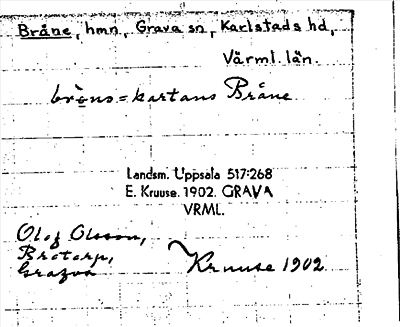 Bråne, hmn, Grava sn, Karlstads hd,
Värml. län.
bròns = kartans Bråne
Landsm. Uppsala 517:268
E. Kruuse. 1902. GRAVA
VRML.
Olof Olsson,
Brotorp,
Grafva
Kruuse 1902